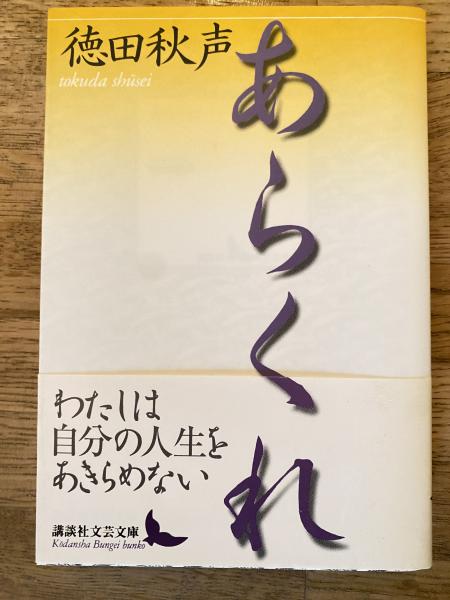 徳田秋声
tokuda shūsei
あらくれ
わたしは
自分の人生を
あきらめない
講談社文芸文庫
Kōdansha Bungei bunko